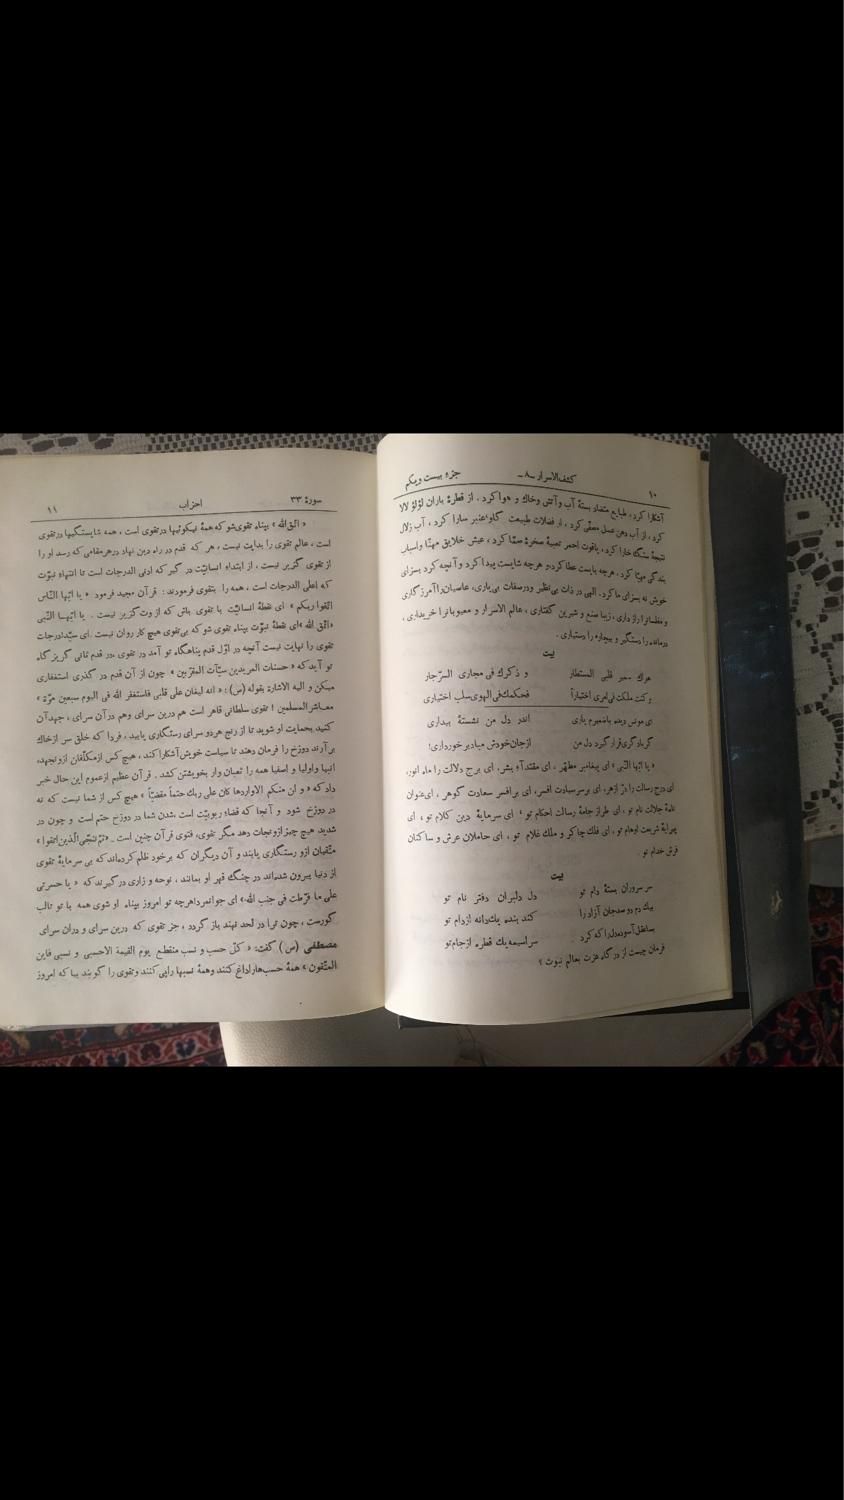 ۱۰ کشف‌الاسرار -۸- جزء بیست ویکم
آشکارا کرد، طبایع متضاد بستهٔ آب وآتش وخاك و هوا کرد . از قطرهٔ باران لؤلؤ لالا
کرد ، از آب دهن عسل مصفّی کرد ، از فضلات طبیعت گاو عنبر سارا کرد ، آب زلال
نتیجهٔ سنگ خارا کرد، یاقوت احمر تعبیهٔ صخرهٔ صمّا کرد ، عیش خلایق مهنّا واسباب
بندگی مهیّا کرد . هرچه بایست عطا کرد و هرچه شایست پیدا کرد و آنچه کرد بسزای
خویش نه بسزای ما کرد. الهی در ذات بی‌نظیر ودرصفات بی‌یاری، عاصیان‌را آمرزگاری
و مفلسانرا رازداری ، زیبا صنع و شیرین گفتاری ، عالم الاسرار و معیوبانرا خریداری ،
درمانده را دستگیر و بیچاره را دستیاری .
بیت
هواك سمیر قلبی المستطار و ذکرك فی مجاری السرّ جار
و کنت ملکت فی امری اختیاراً فحکمك فی الهوی سلب اختیاری
ای مونس دیده باضمیرم یاری اندر دل من نشستهٔ بیداری
گر با دگری قرار گیرد دل من ازجان خودش مباد برخورداری!
« یا ایّها النّبی » ای پیغامبر مطهّر ، ای مقتداء بشر، ای برج دلالت را ماه انور،
ای درج رسالت را درّ ازهر، ای برسر سیادت افسر، ای برافسر سعادت گوهر ، ای عنوان
نامهٔ جلالت نام تو ، ای طراز جامهٔ رسالت احکام تو ، ای سرمایهٔ دین کلام تو ، ای
پیرایهٔ شریعت اوهام تو ، ای فلك چاکر و ملك غلام تو ، ای حاملان عرش و ساکنان
فرش خدام تو .
بیت
سر سروران بستهٔ دام تو دل دلبران دفتر نام تو
بیك دم دو صد جان آزاد را کند بنده یك‌دانه از دام تو
بسا عقل آسوده دل را که کرد سراسیمه یك قطره از جام تو
فرمان چیست از درگاه عزت بعالم نبوت ؟
سورة ۳۳ احزاب ۱۱
« اتّق الله » بپناه تقوی شو که همهٔ نیکوئیها درتقوی است ، همه شایستگیها درتقوی
است ، عالم تقوی را بدایت نیست ، هر که قدم در راه دین نهاد درهرمقامی که رسد او را
از تقوی گزیر نیست ، از ابتداءِ انسانیّت در گیر که ادنی الدرجات است تا انتهاءِ نبوّت
که اعلی الدرجات است ، همه را بتقوی فرمودند : قرآن مجید فرمود « یا ایّها النّاس
اتّقوا ربکم » ای نقطهٔ انسانیّت با تقوی باش که از وت گزیر نیست . یا ایّهـا النّبی
«اتّق الله »ای نقطهٔ نبوّت بپناه تقوی شو که بی‌تقوی هیچ کار روان نیست .ای سیّد!درجات
تقوی را نهایت نیست آنچه در اوّل قدم پناهگاه تو آمد در تقوی ،در قدم ثانی گریزگاه
تو آید که « حسنات المریدین سیّآت المقرّبین » چون از آن قدم در گذری استغفاری
میکن و الیه الاشارة بقوله (ص) : « انه لیغان علی قلبی فاستغفر الله فی الیوم سبعین مرّة »
معـاشر المسلمین ! تقوی سلطانی قاهر است هم درین سرای وهم درآن سرای ، جهدآن
کنید بحمایت او شوید تا از رنج هردو سرای رستگاری یابید ، فردا که خلق سر ازخاك
بی‌آرند دوزخ را فرمان دهند تا سیاست خویش آشکارا کند ، هیچ‌کس ازمکلّفان ازونجهد،
انبیا واولیا و اصفیا همه را ثعبان وار بخویشتن کشد . قرآن عظیم ازعموم این حال خبر
داد که « و ان منکم الاواردها کان علی ربك حتماً مقضیّاً » هیچ کس از شما نیست که نه
در دوزخ شود و آنجا که قضاء ربوبیّت است ،شدن شما در دوزخ حتم است و چون در
شدید هیچ چیز ازو نجات دهد مگر تقوی، فتوی قرآن چنین است ـ «ثمّ ننجّی الّذین اتقوا »
متّقیان ازو رستگاری یابند و آن دیگران که برخود ظلم کرده‌اند که بی سرمایهٔ تقوی
از دنیا بیرون شده‌اند در چنگ قهر او بمانند ، نوحه و زاری درگیرند که « یا حسرتی
علی ما فرّطت فی جنب الله» ای جوانمرد!هرچه تو امروز بپناه او شوی همه با تو تالب
گورست ، چون ترا در لحد نهند باز گردد ، جز تقوی که درین سرای و دران سرای
مصطفی (ص) گفت: « کلّ حسب و نسب منقطـع یوم القیمة الاحسبی و نسبی فاین
المتّقون » همهٔ حسب‌هارا داغ کنند وهمهٔ نسبها را پی کنند وتقوی را گویند بیا که امروز